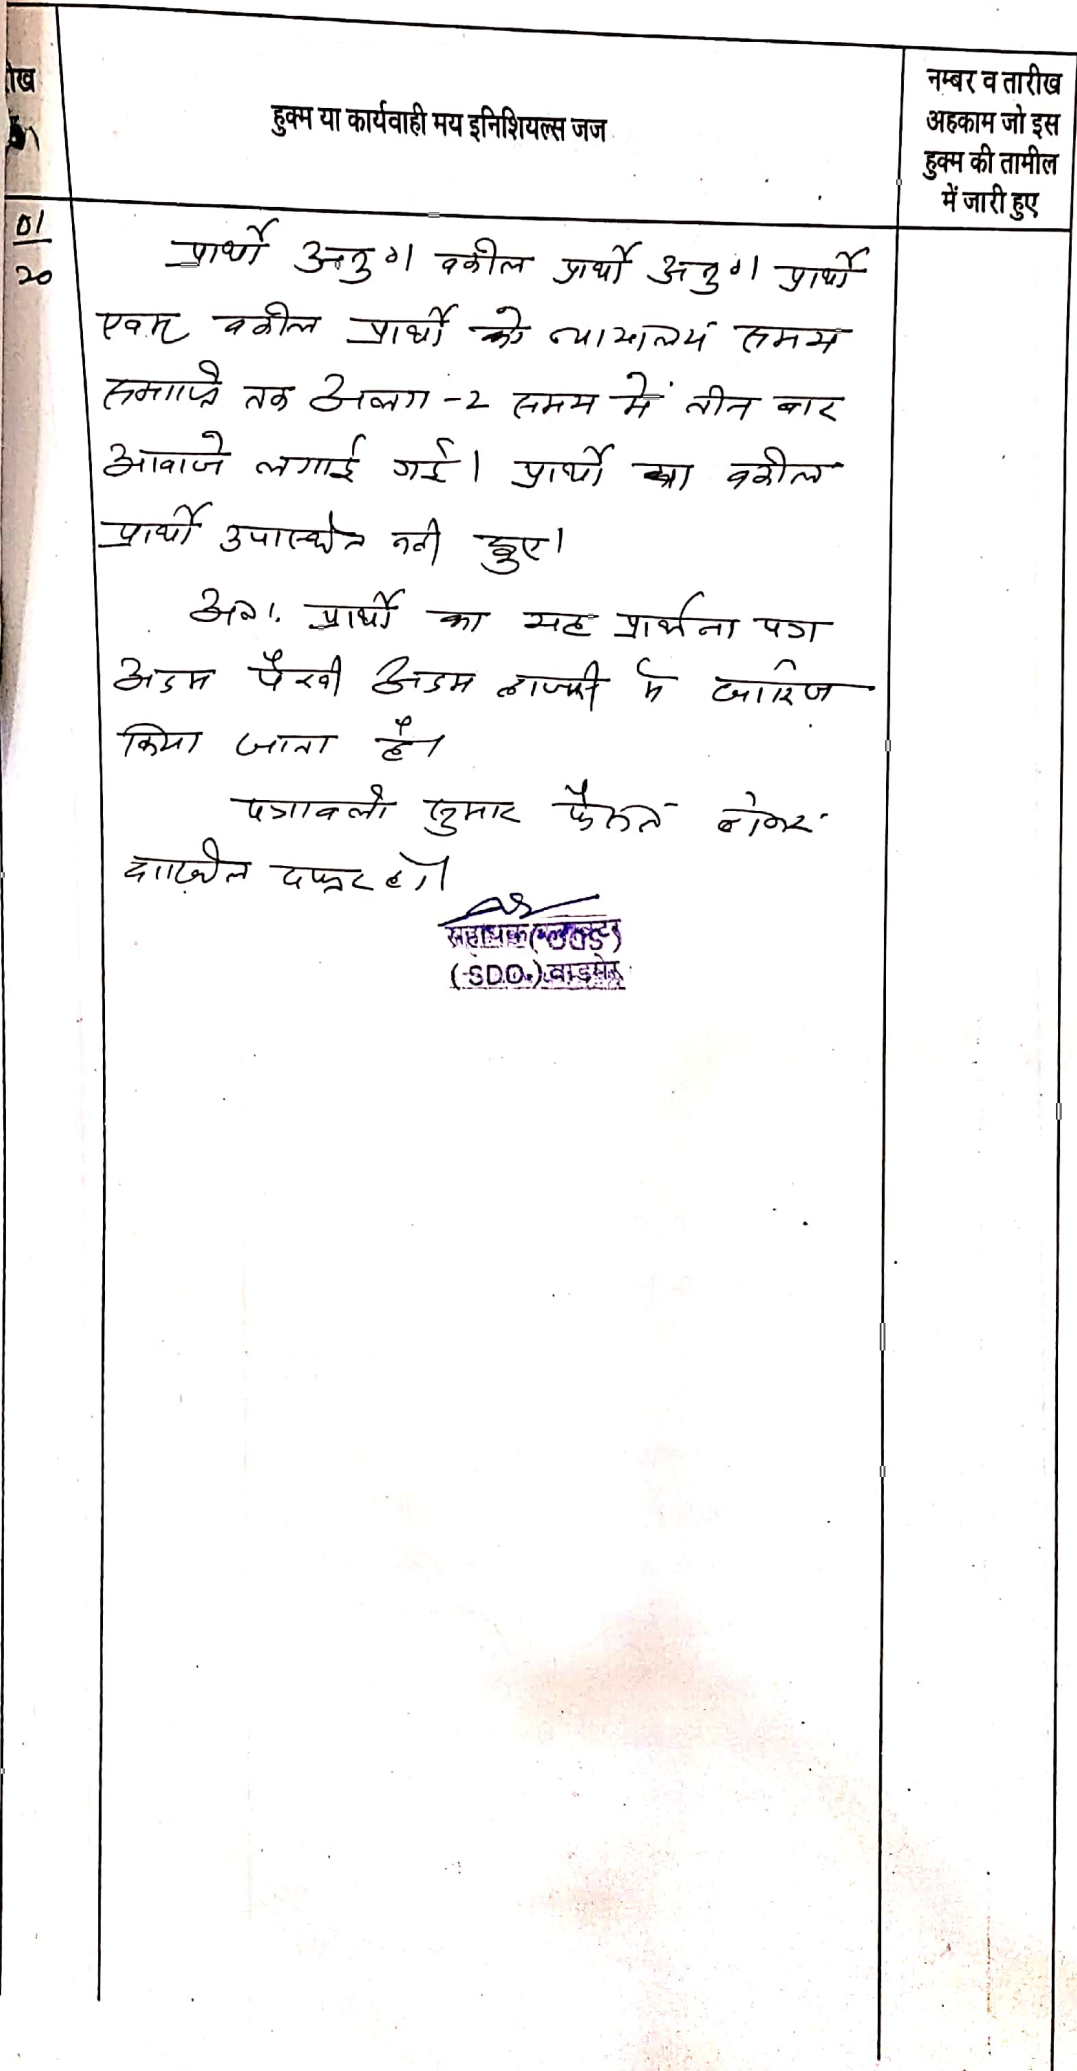 हुक्म या कार्यवाही मय इनिशियल्स जज
नम्बर व तारीख
अहकाम जो इस
हुक्म की तामील
में जारी हुए
01
20
प्रार्थी अनु० वकील प्रार्थी अनु० प्रार्थी
एवम् वकील प्रार्थी को न्यायालय समय
समाप्ति तक अलग-2 समय में तीन बार
आवाजे लगाई गई। प्रार्थी या वकील
प्रार्थी उपस्थित नही हुए।
अतः प्रार्थी का यह प्रार्थना पत्र
अदम पैरवी अदम हाजरी मे खारिज
किया जाता है।
पत्रावली शुमार फैसल होकर
दाखिल दफ्तर हो।
सहायक कलक्टर
(SDO.) बाड़मेर